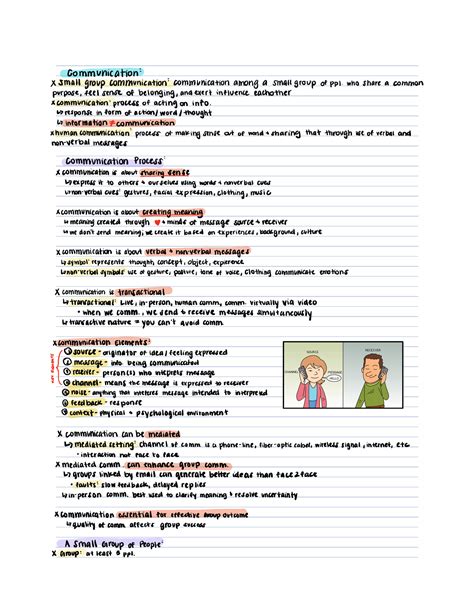 Communication:
x Small group communication: communication among a small group of ppl. who share a common
purpose, feel sense of belonging, and exert influence eachother
x communication: process of acting on info.
↳ response in form of action/word/thought
↳ information ≠ communication
x human communication: process of making sense out of word + sharing that through use of verbal and
non-verbal messages
Communication Process:
x communication is about sharing sense
↳ express it to others + ourselves using words + nonverbal cues
↳ non-verbal cues: gestures, facial expression, clothing, music
x communication is about creating meaning
↳ meaning created through ♥ + minds of message source + receiver
↳ we don't send meaning, we create it based on experiences, background, culture
x communication is about verbal + nonverbal messages
↳ symbol: represents thought, concept, object, experience
↳ non-verbal symbols: use of gesture, posture, tone of voice, clothing communicate emotions
x communication is transactional
↳ transactional: Live, in-person, human comm, comm. virtually via video
• when we comm., we send + receive messages simultaneously
↳ transactive nature = you can't avoid comm.
x communication elements:
① source - originator of idea/feeling expressed
② message - info being communicated
③ receiver - person(s) who interprets message
④ channel - means the message is expressed to receiver
⑤ noise - anything that interferes message intended to interpreted
⑥ feedback - response
⑦ context - physical + psychological environment
SOURCE
RECEIVER
CHANNEL
MESSAGE
x communication can be mediated
↳ mediated setting: channel of comm. is a phone-line, fiber-optic cabel, wireless signal, internet, etc
• interaction not face to face
x mediated comm. can enhance group comm.
↳ groups linked by email can generate better ideas than face2face
• faults: slow feedback, delayed replies
↳ in-person comm. best used to clarify meaning + resolve uncertainty
x communication essential for effective group outcome
↳ quality of comm. affects group success
A Small Group of People:
x Group: at least 3 ppl.